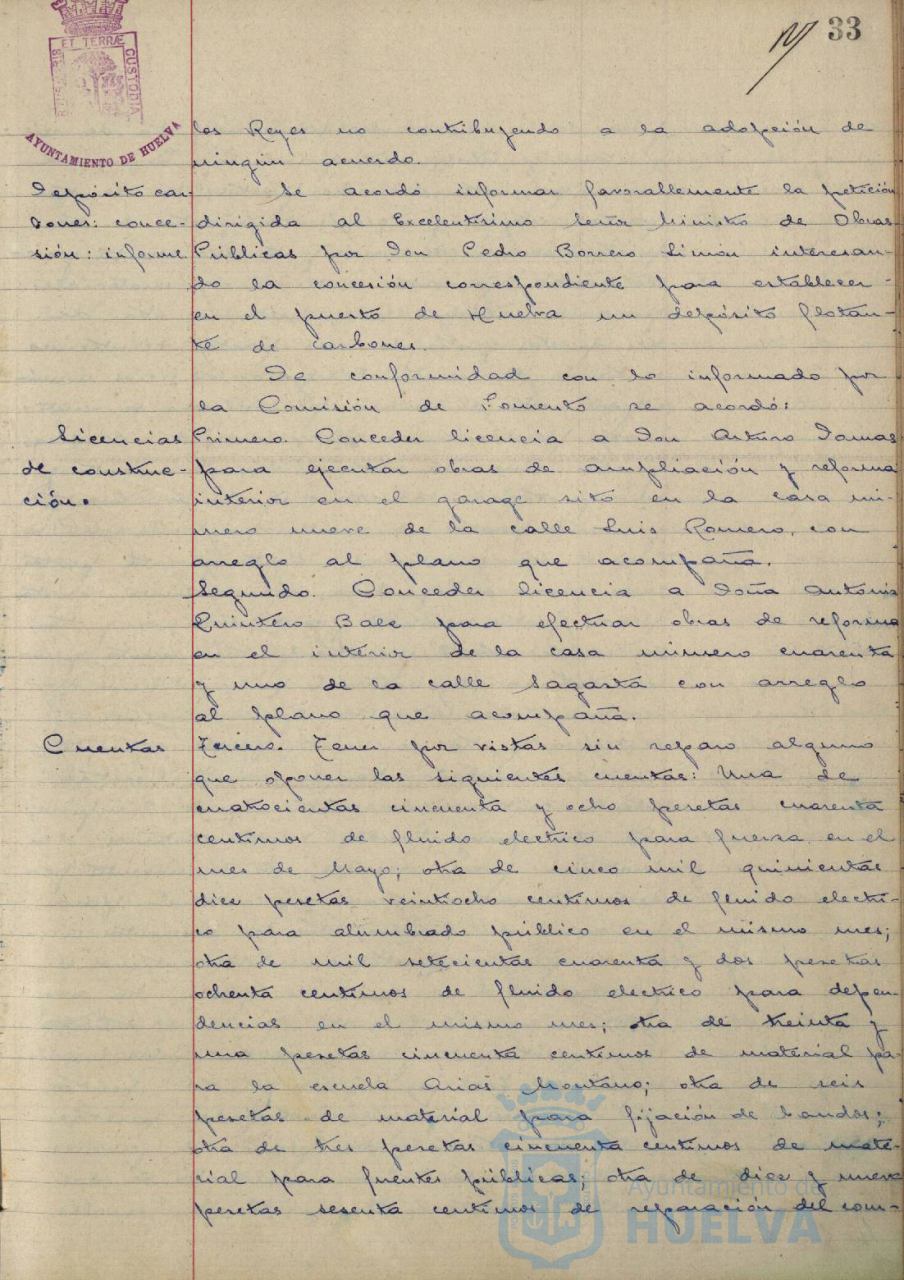 33
ET TERRÆ
CUSTODIA
AYUNTAMIENTO DE HUELVA
los Reyes no contribuyendo a la adopción de
ningún acuerdo.
Depósito car-
bones: conce-
sión: informe
Se acordó informar favorablemente la petición
dirigida al Excelentísimo Señor Ministro de Obras
Públicas por Don Pedro Borrero Limón interesan-
do la concesión correspondiente para establecer
en el puerto de Huelva un depósito flotan-
te de carbones.
De conformidad con lo informado por
la Comisión de Fomento se acordó:
Licencias
de construc-
ción.
Primero. Conceder licencia a Don Arturo Damas
para ejecutar obras de ampliación y reforma
interior en el garage sito en la casa nú-
mero nueve de la calle Luis Romero, con
arreglo al plano que acompaña.
Segundo. Conceder licencia a Doña Antonia
Quintero Baez para efectuar obras de reforma
en el interior de la casa número cuarenta
y uno de la calle Sagasta con arreglo
al plano que acompaña.
Cuentas
Tercero. Tener por vistas sin reparo alguno
que oponer las siguientes cuentas: Una de
cuatrocientas cincuenta y ocho pesetas cuarenta
centimos de fluido electrico para fuerza en el
mes de Mayo; otra de cinco mil quinientas
diez pesetas veintiocho centimos de fluido electri-
co para alumbrado público en el mismo mes;
otra de mil setecientas cuarenta y dos pesetas
ochenta centimos de fluido electrico para depen-
dencias en el mismo mes; otra de treinta y
una pesetas cincuenta centimos de material pa-
ra la escuela Arias Montano; otra de seis
pesetas de material para fijación de bandos;
otra de tres pesetas cincuenta centimos de mate-
rial para fuentes públicas; otra de diez y nueve
pesetas sesenta centimos de reparación del com-
Ayuntamiento de
HUELVA